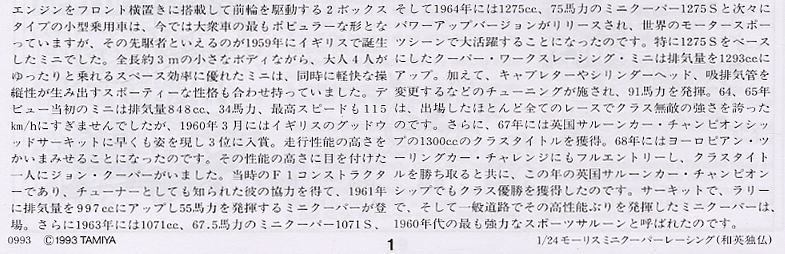 エンジンをフロント横置きに搭載して前輪を駆動する2ボックス
タイプの小型乗用車は、今では大衆車の最もポピュラーな形とな
っていますが、その先駆者といえるのが1959年にイギリスで誕生
したミニでした。全長約3mの小さなボディながら、大人4人が
ゆったりと乗れるスペース効率に優れたミニは、同時に軽快な操
縦性が生み出すスポーティーな性格も合わせ持っていました。デ
ビュー当初のミニは排気量848cc、34馬力、最高スピードも115
km/hにすぎませんでしたが、1960年3月にはイギリスのグッドウ
ッドサーキットに早くも姿を現し3位に入賞。走行性能の高さを
かいまみせることになったのです。その性能の高さに目を付けた
一人にジョン・クーパーがいました。当時のF1コンストラクタ
ーであり、チューナーとしても知られた彼の協力を得て、1961年
に排気量を997ccにアップし55馬力を発揮するミニクーパーが登
場。さらに1963年には1071cc、67.5馬力のミニクーパー1071S、
そして1964年には1275cc、75馬力のミニクーパー1275Sと次々に
パワーアップバージョンがリリースされ、世界のモータースポー
ツシーンで大活躍することになったのです。特に1275Sをベース
にしたクーパー・ワークスレーシング・ミニは排気量を1293ccに
アップ。加えて、キャブレターやシリンダーヘッド、吸排気管を
変更するなどのチューニングが施され、91馬力を発揮。64、65年
は、出場したほとんど全てのレースでクラス無敵の強さを誇った
のです。さらに、67年には英国サルーンカー・チャンピオンシッ
プの1300ccのクラスタイトルを獲得。68年にはヨーロピアン・ツ
ーリングカー・チャレンジにもフルエントリーし、クラスタイト
ルを勝ち取ると共に、この年の英国サルーンカー・チャンピオン
シップでもクラス優勝を獲得したのです。サーキットで、ラリー
で、そして一般道路でその高性能ぶりを発揮したミニクーパーは、
1960年代の最も強力なスポーツサルーンと呼ばれたのです。
0993 ©1993 TAMIYA
1
1/24モーリスミニクーパーレーシング(和英独仏)